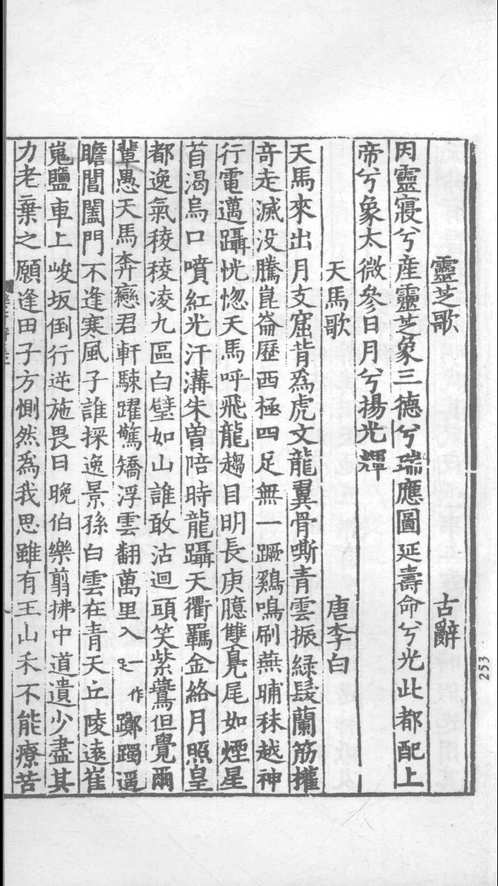 靈芝歌 古辭
因靈寢兮產靈芝象三德兮瑞應圖延壽命兮光此都配上
帝兮象太微參日月兮揚光輝
天馬歌 唐李白
天馬來出月支窟背爲虎文龍翼骨嘶青雲振綠髮蘭筋權
奇走滅没騰崑崙歷西極四足無一蹶鷄鳴刷燕晡秣越神
行電邁躡恍惚天馬呼飛龍趨目明長庚臆雙鳧尾如煙星
首渴烏口噴紅光汗溝朱曽陪時龍躡天衢羈金絡月照皇
都逸氣稜稜凌九區白璧如山誰敢沽迴頭笑紫鷰但覺爾
輩愚天馬奔戀君軒駷躍驚矯浮雲翻萬里入一作躑躅遥
瞻閶闔門不逢寒風子誰採逸景孫白雲在青天丘陵遠崔
嵬鹽車上峻坂倒行逆施畏日晚伯樂翦拂中道遺少盡其
力老棄之願逢田子方惻然爲我思雖有玉山禾不能療苦
253